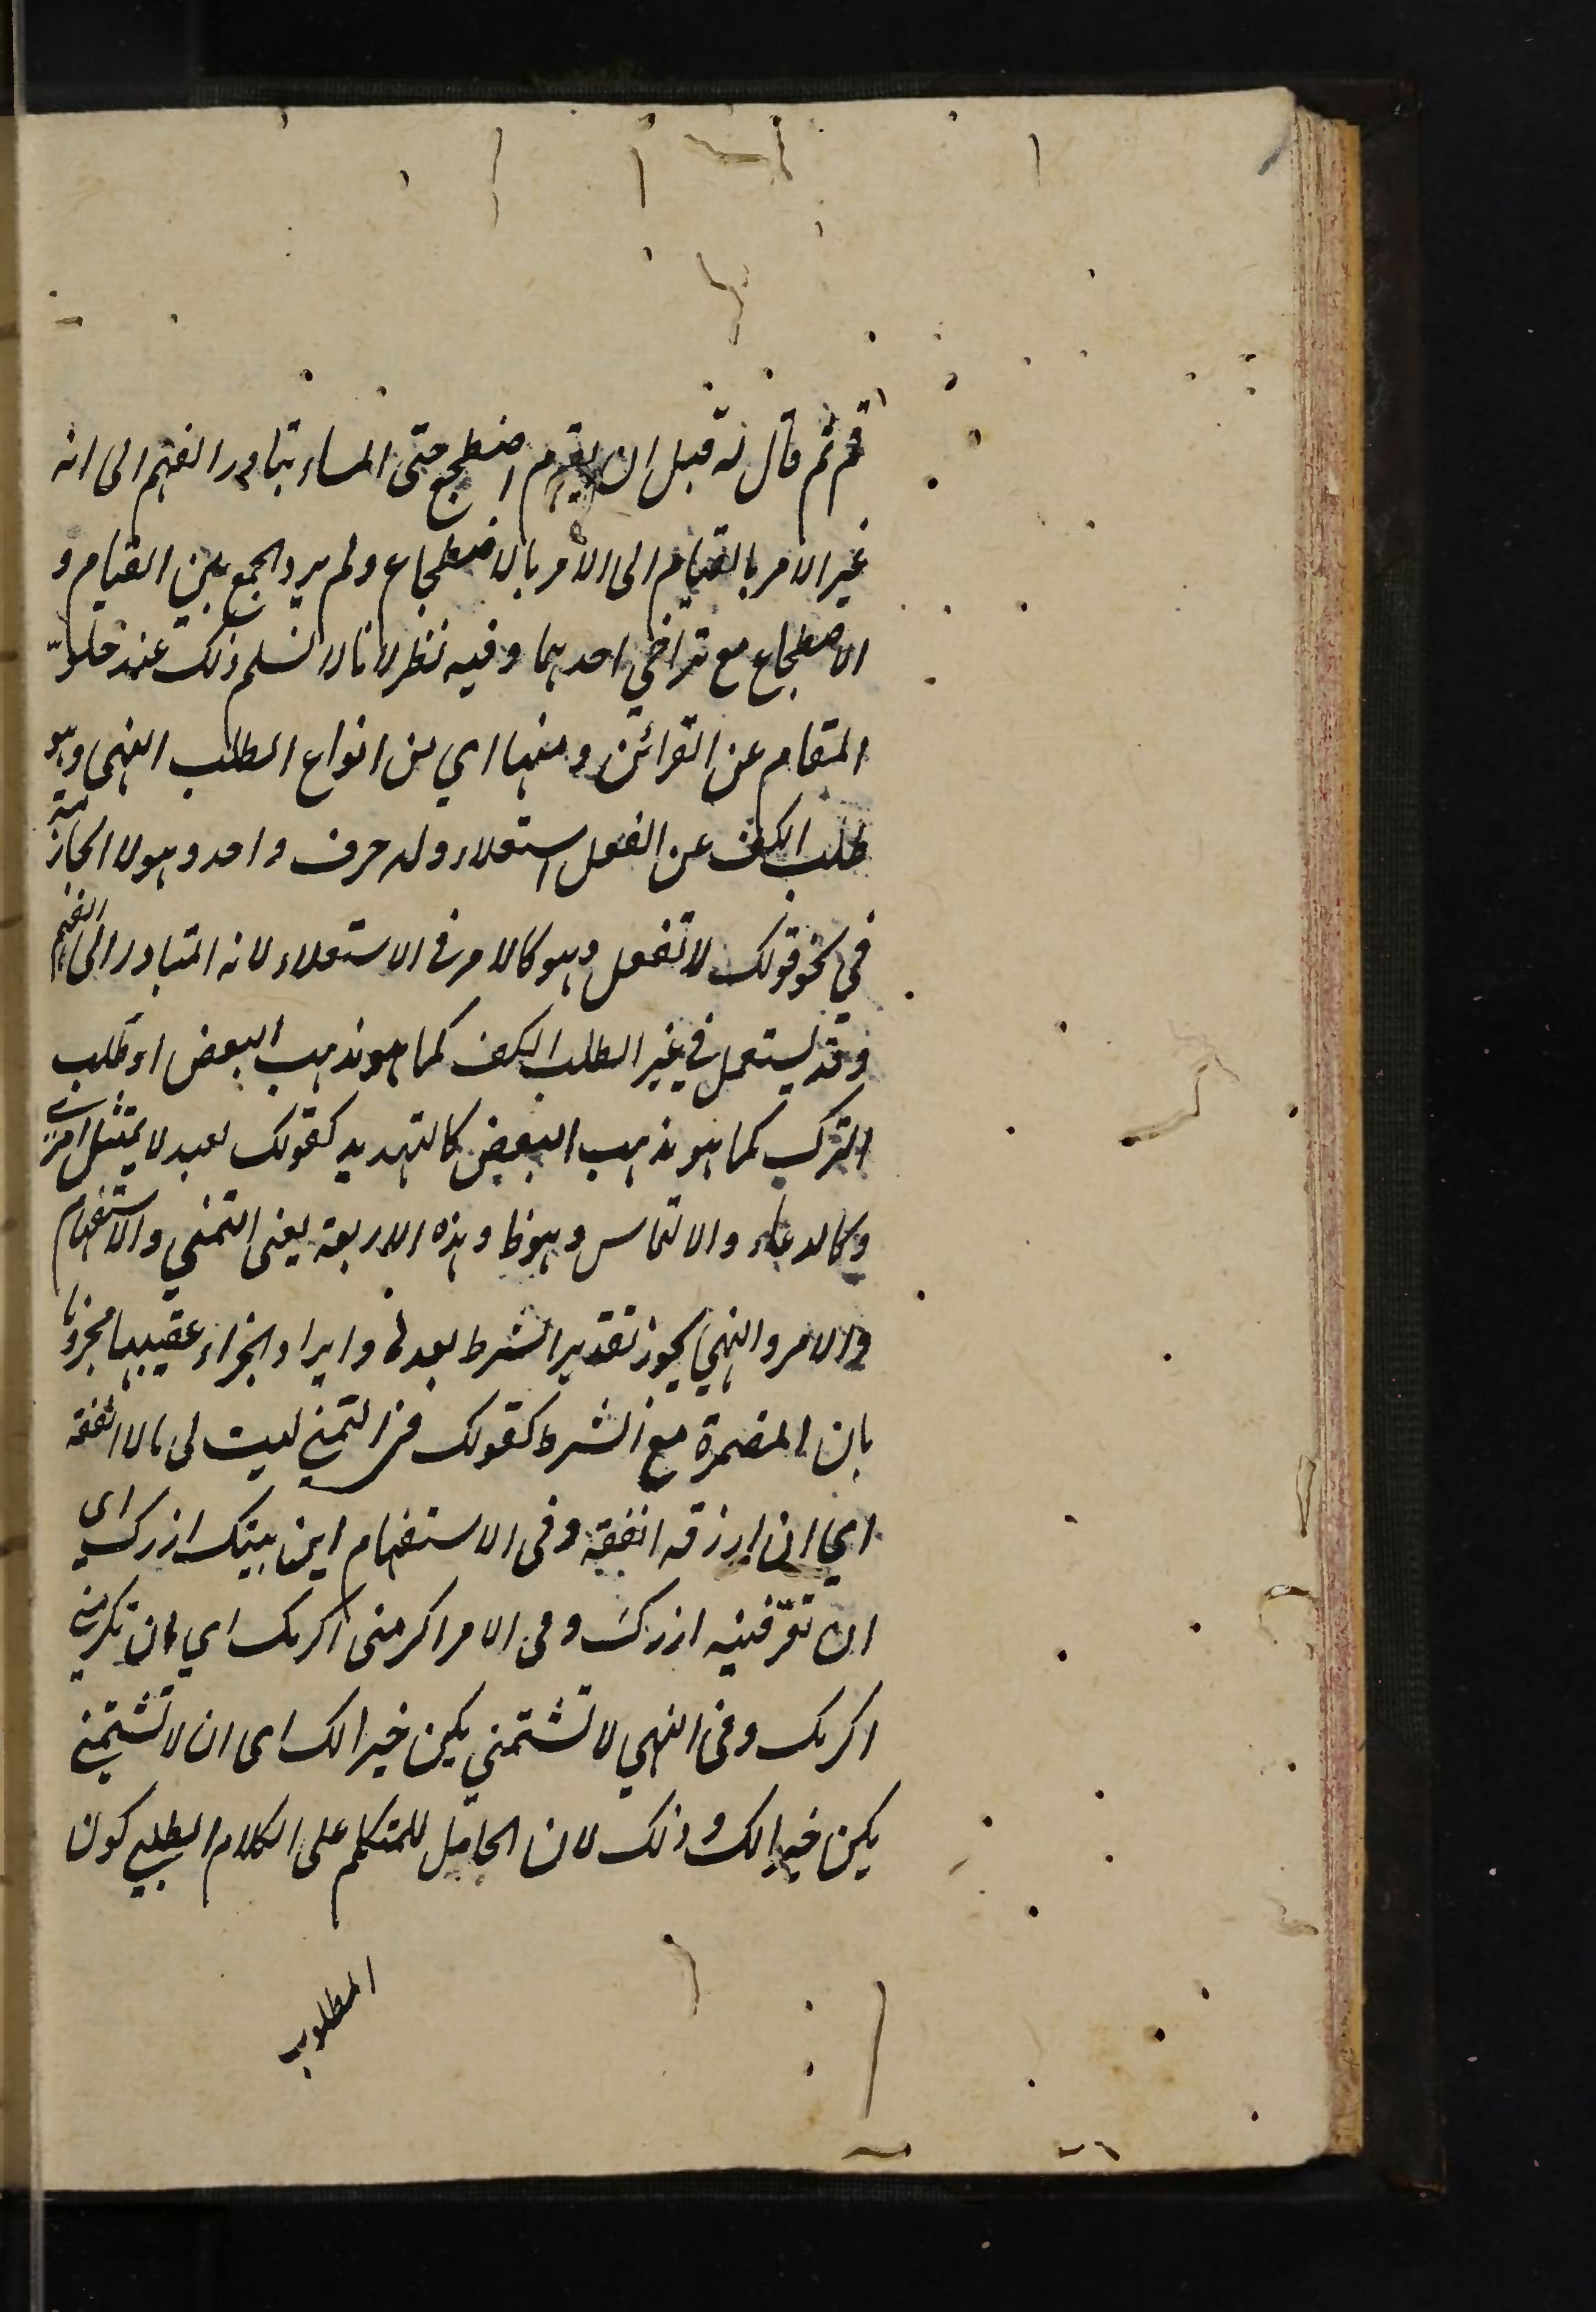 قم ثم قال له قبل ان يقوم اضطجع حتى المساء يتبادر الفهم الى انه
غير الامر بالقيام الى الامر بالاضطجاع ولم يرد الجمع بين القيام و
الاضطجاع مع تراخي احدهما وفيه نظر لانا لا نسلم ذلك عند خلوّ
المقام عن القرائن ومنها اي من انواع الطلب النهى وهو
طلب الكف عن الفعل استعلاء وله حرف واحد وهو لا الجازمة
في نحو قولك لا تفعل وهو كالامر في الاستعلاء لانه المتبادر الى الفهم
وقد يستعمل في غير الطلب الكف كما هو مذهب البعض او طلب
الترك كما هو مذهب البعض كالتهديد كقولك لعبد لا يمتثل امرك
وكالدعاء والالتماس وهو ظ وهذه الاربعة يعنى التمني والاستفهام
والامر والنهي يجوز تقدير الشرط بعدها وايراد الجزاء عقيبها مجزوما
بان المضمرة مع الشرط كقولك في التمني ليت لى مالا انفقه
اي ان ارزقه انفقه وفى الاستفهام اين بيتك ازرك اى
ان تعرّفنيه ازرك وفى الامر اكرمنى اكرمك اي ان تكرمني
اكرمك وفى النهي لا تشتمني يكن خيرا لك اى ان لا تشتمني
يكن خيرا لك وذلك لان الحامل للمتكلم على الكلام الطلبي كون
المطلوب